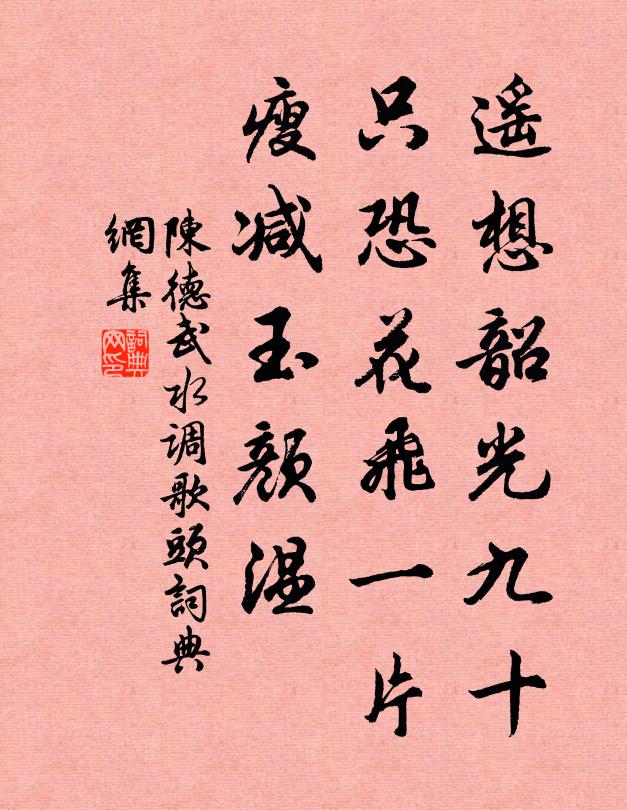 遥想韶光九十
只恐花飛一片
瘦减玉顏温
陳德武水调歌頭詞典
網集
詞典
网印